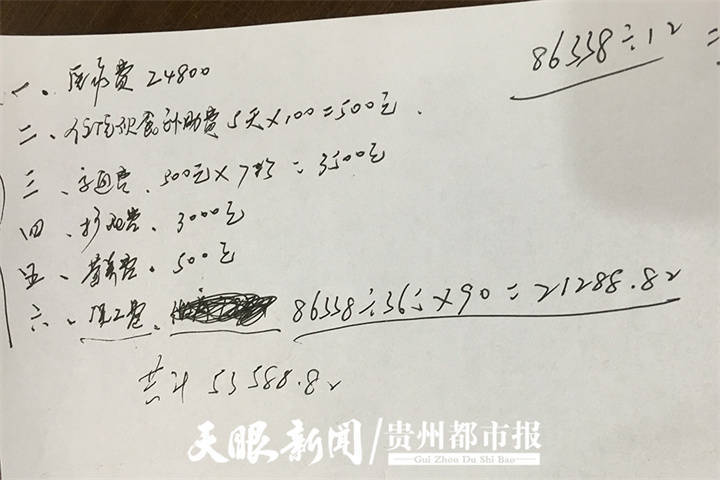 86338÷12 =
一、医疗费 24800
二、住院伙食补助费 5天×100=500元.
三、交通费、500元×7 = 3500元
四、护理费、3000元
五、营养费、500元
六、误工费、 86338÷365×90=21288.82
共计 53588.82
天眼新闻/贵州都市报
Gui Zhou Du Shi Bao